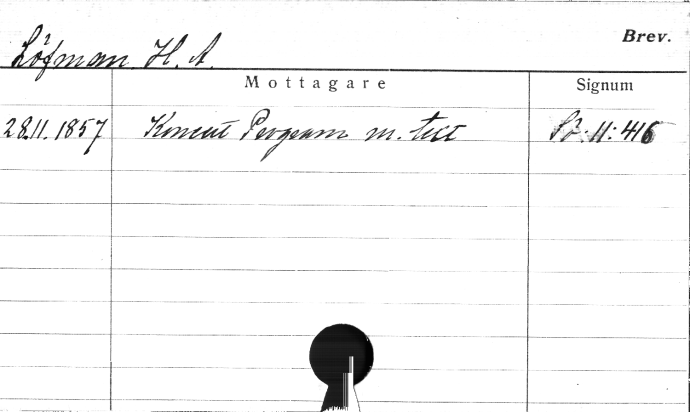 Brev.
Löfman H. A.
Mottagare Signum
28.11.1857 Konsert Program m. text :11:416